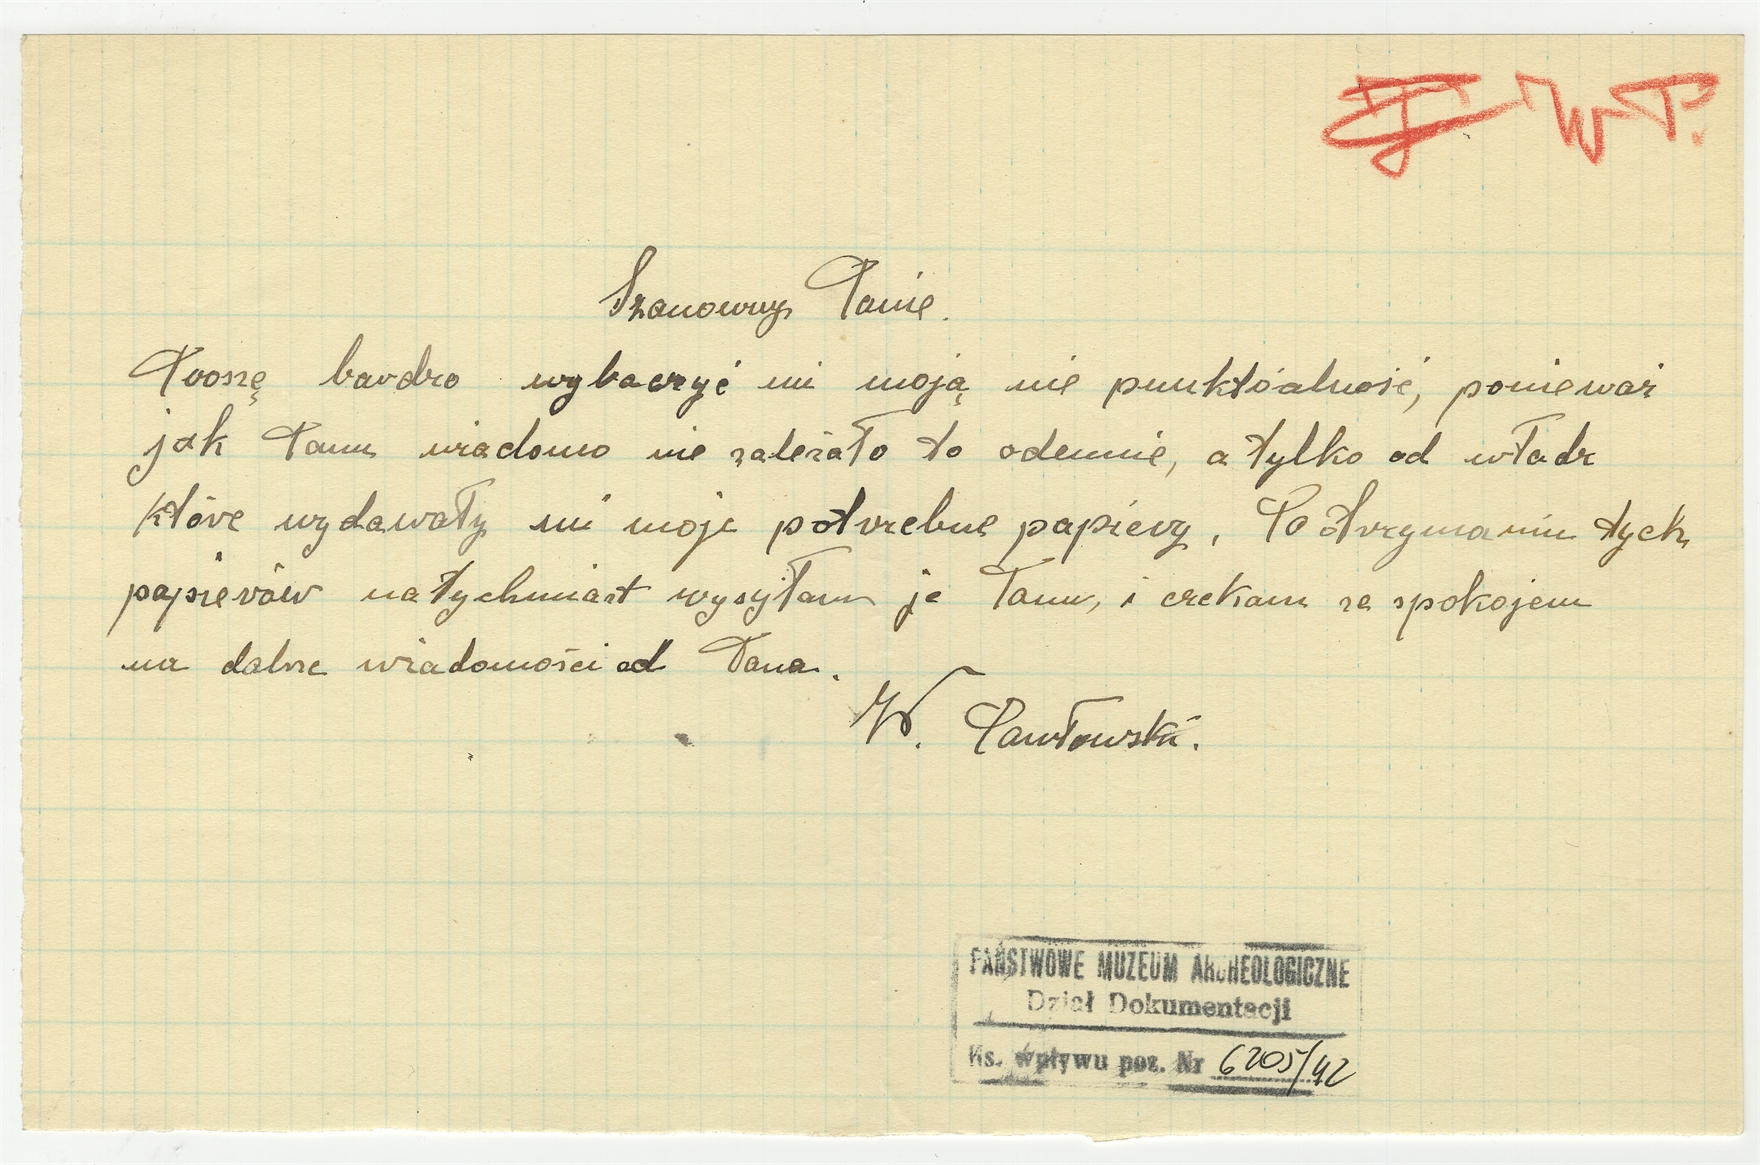 W P.
Szanowny Panie.
Proszę bardzo wybaczyć mi moją nie punktóalność, ponieważ
jak Panu wiadomo nie zależało to odemnie, a tylko od władz
które wydawały mi moje potrzebne papiery, Po otrzymaniu tych
papierów natychmiast wysyłam je Panu, i czekam ze spokojem
na dalsze wiadomości od Pana.
W. Pawłowski.
PAŃSTWOWE MUZEUM ARCHEOLOGICZNE
Dział Dokumentacji
Ks. wpływu poz. Nr 6205/42